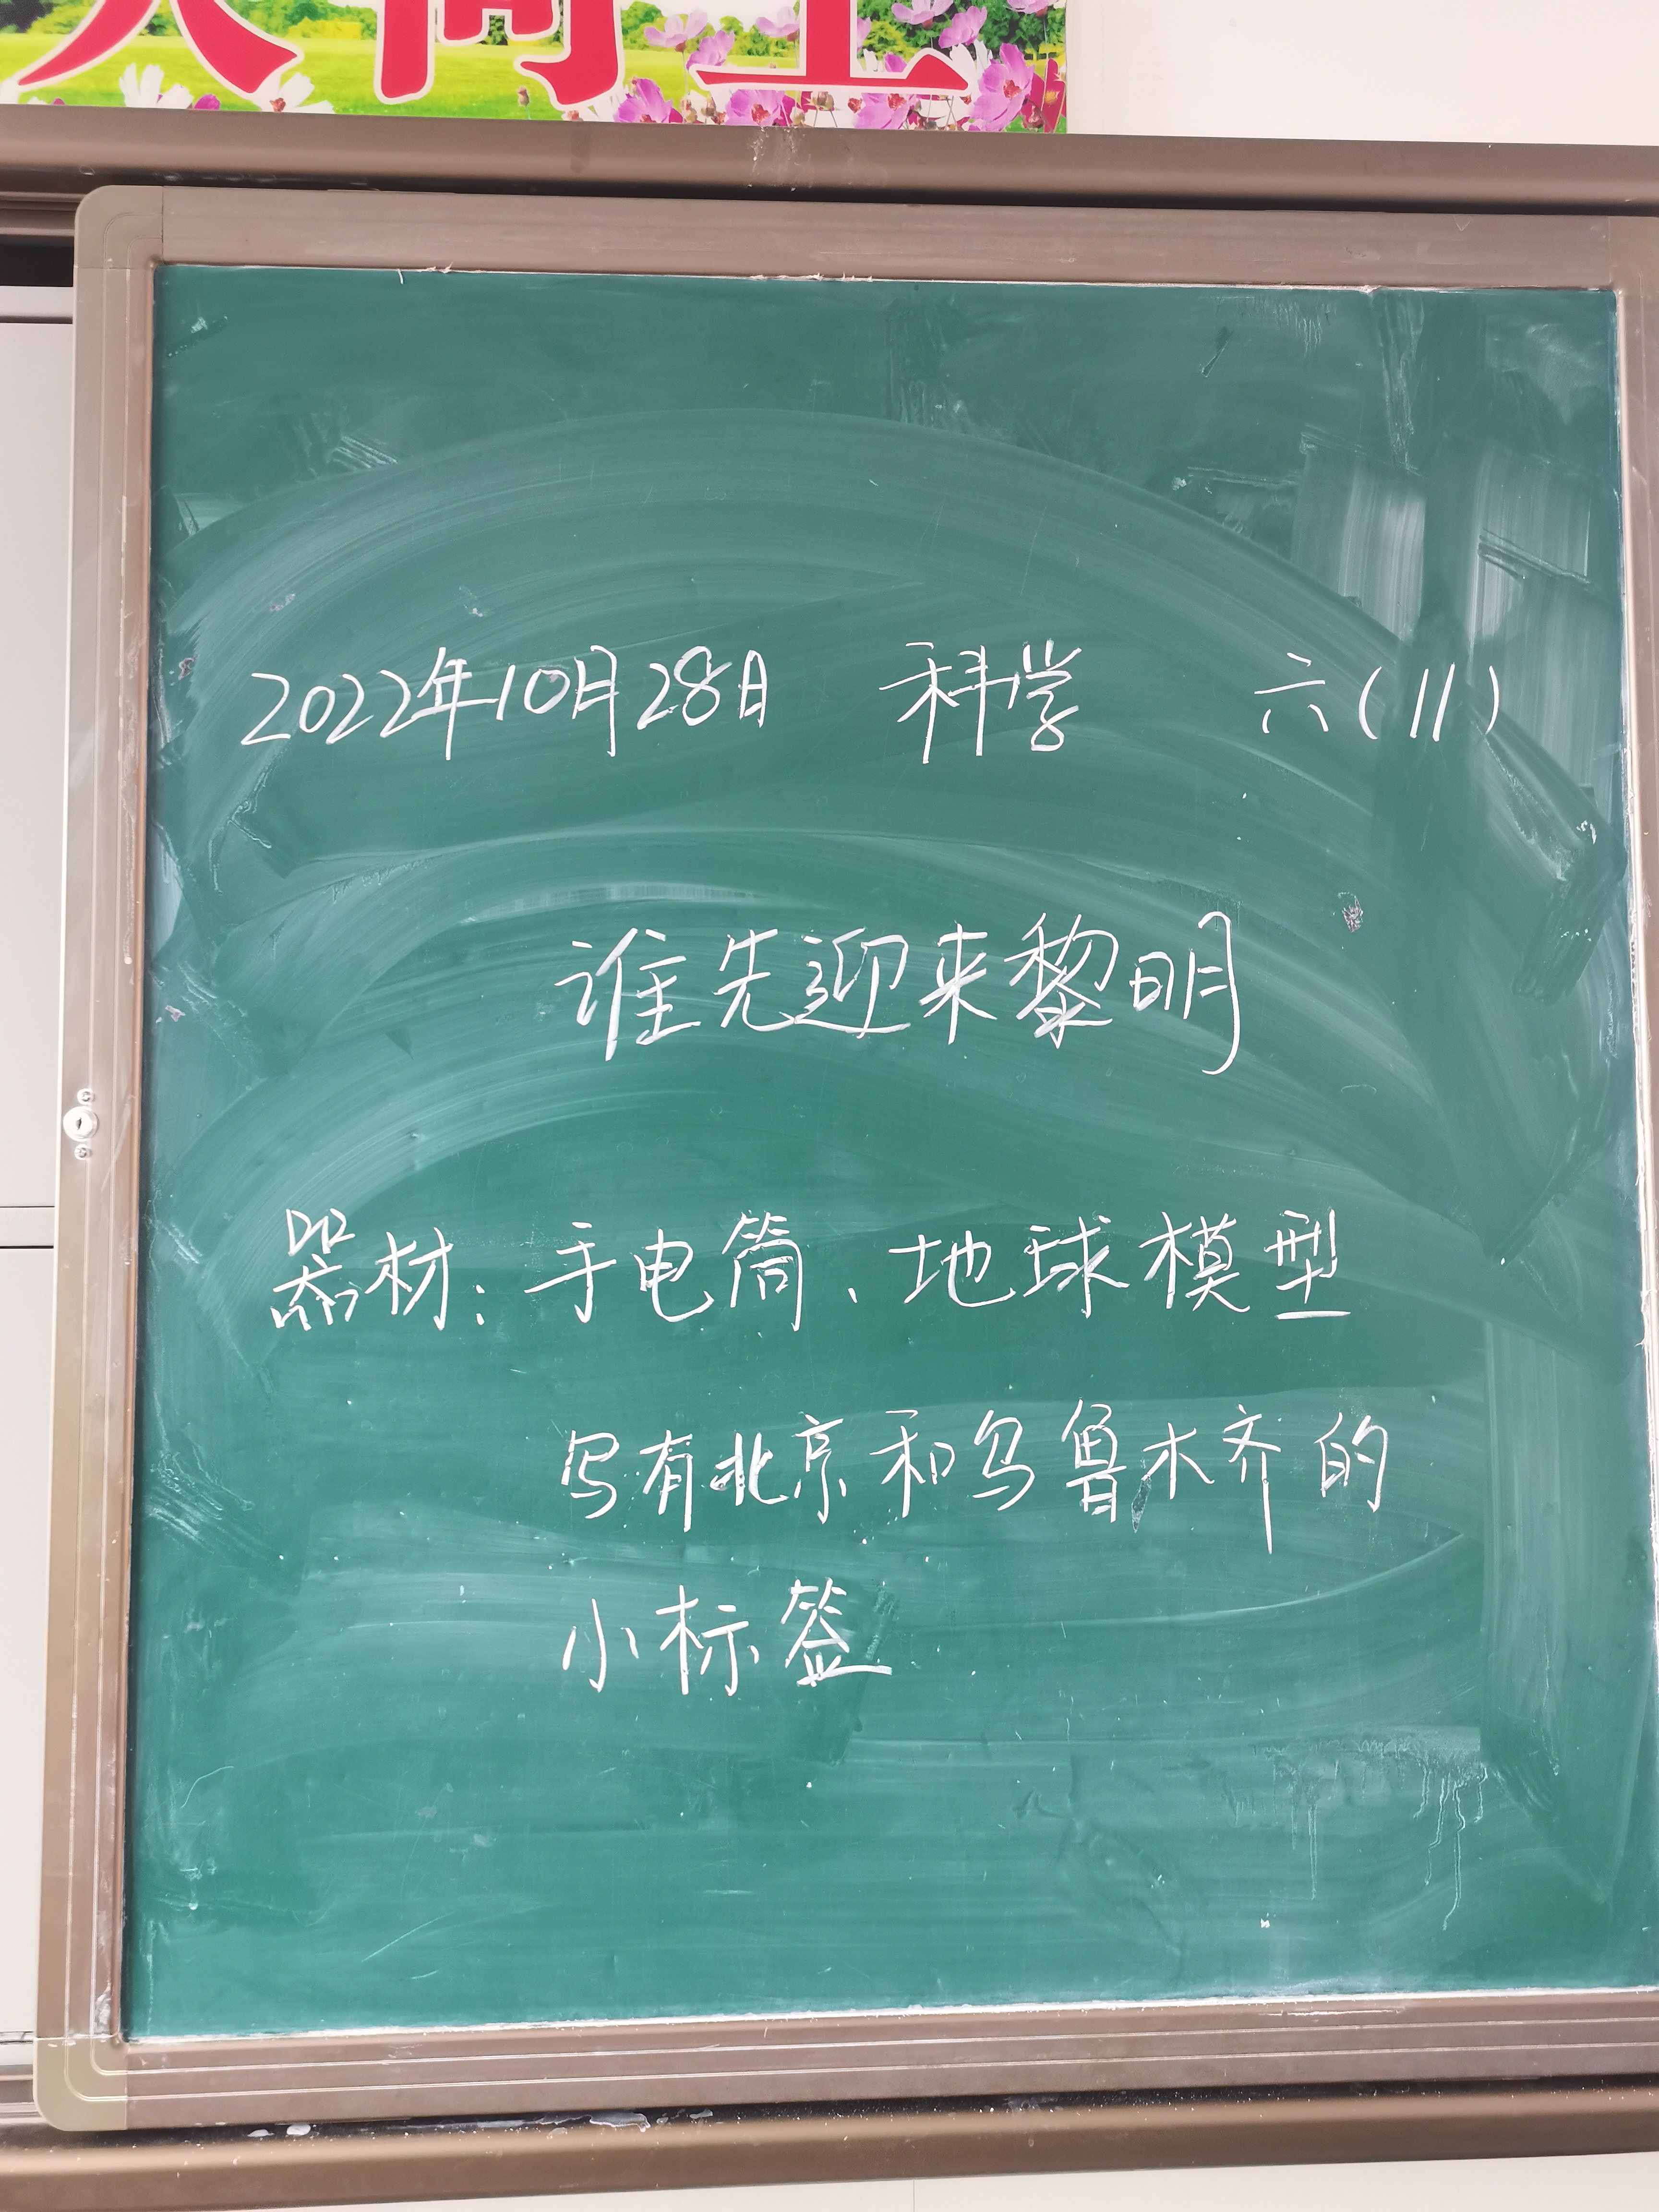 人向上
2022年10月28日 科学 六(11)
谁先迎来黎明
器材：手电筒、地球模型
写有北京和乌鲁木齐的
小标签